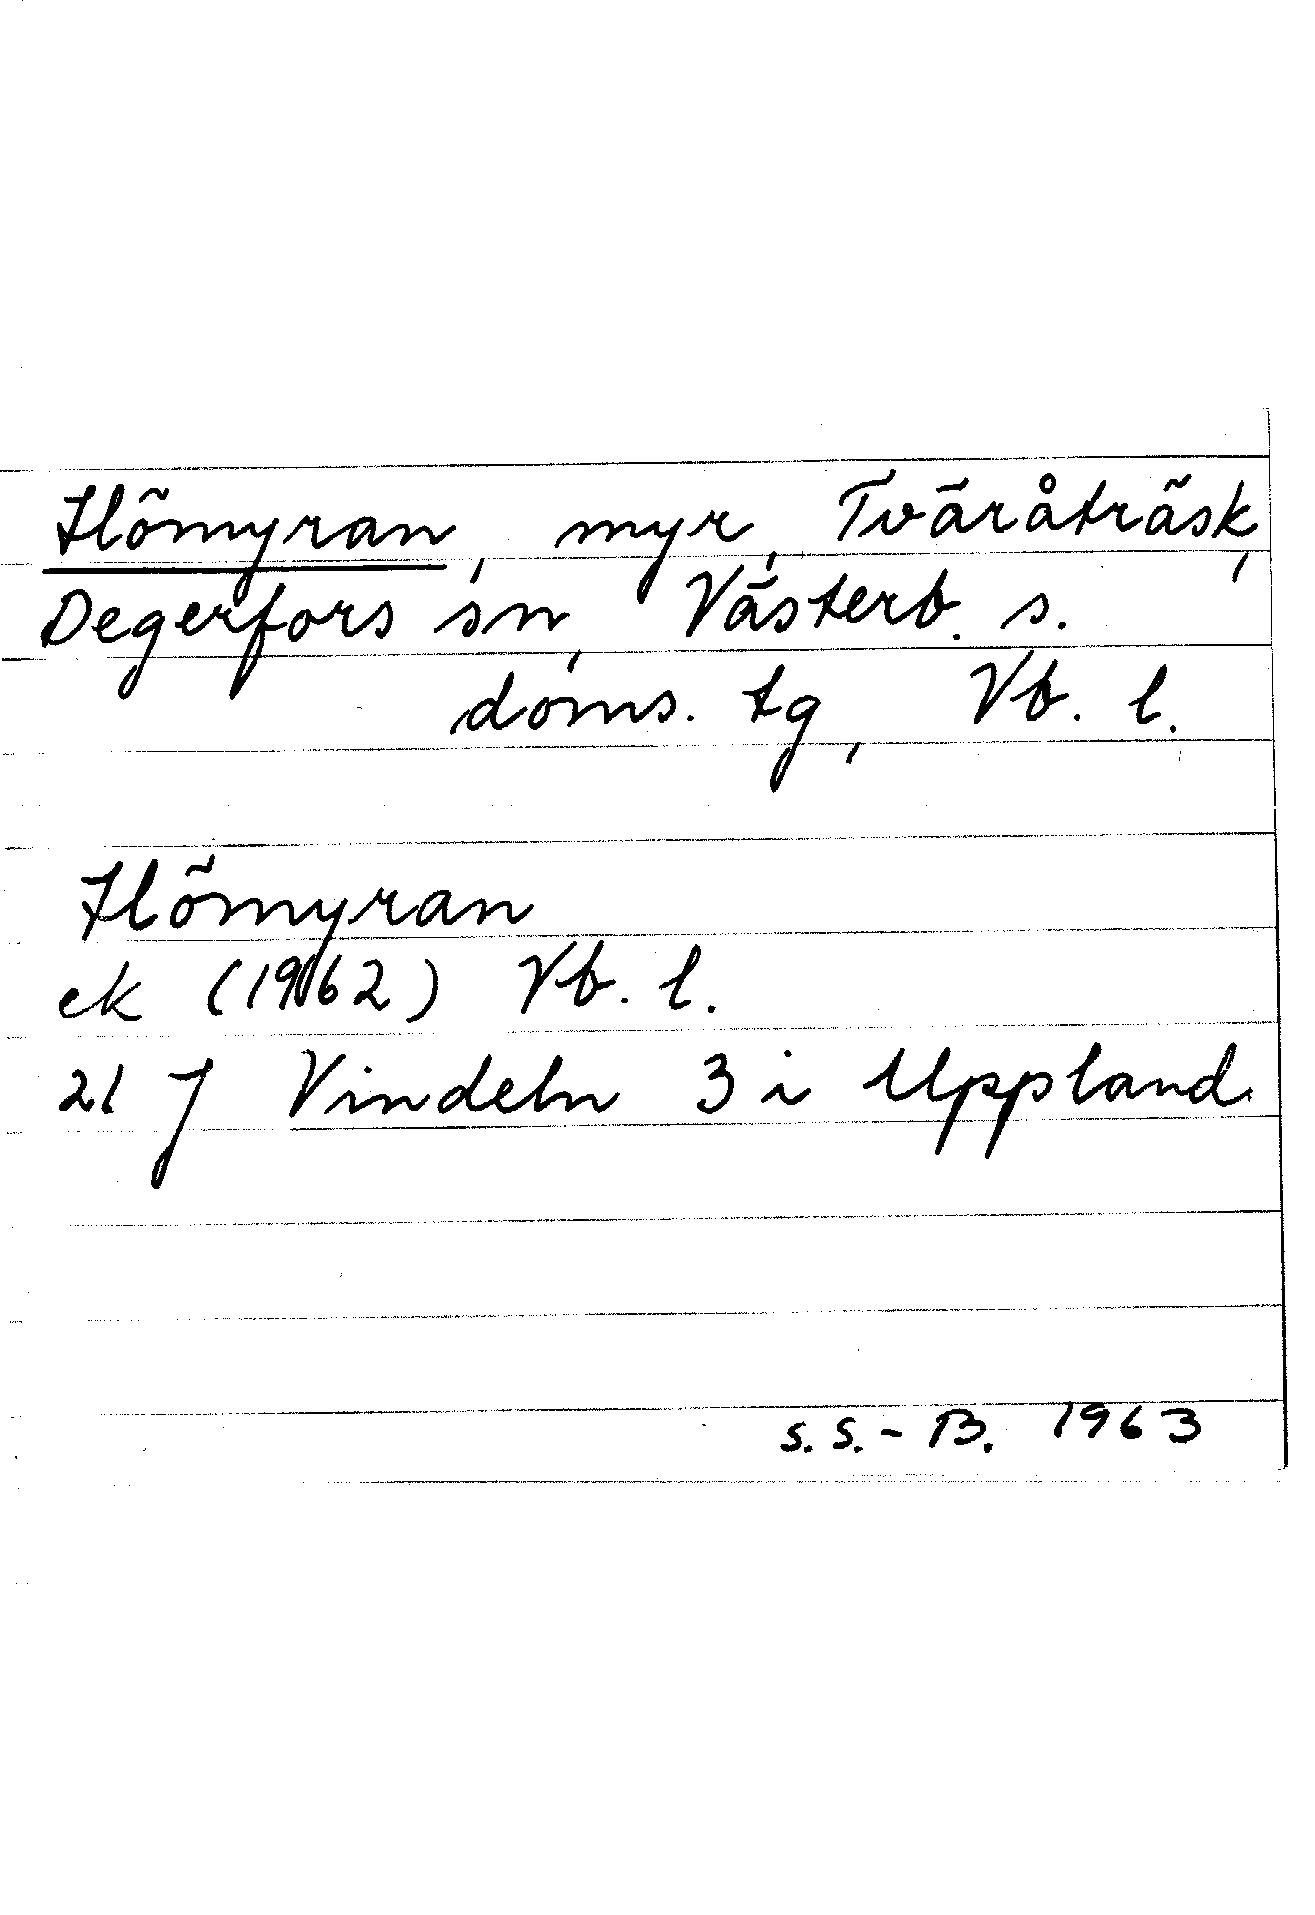 Hömyran, myr, Tväråträsk,
Degerfors sn, Västerb. s.
doms. tg, Vb. l.
Hömyran
ek (1962) Vb. l.
21 J Vindeln 3 i Uppland.
S. S. - B. 1963